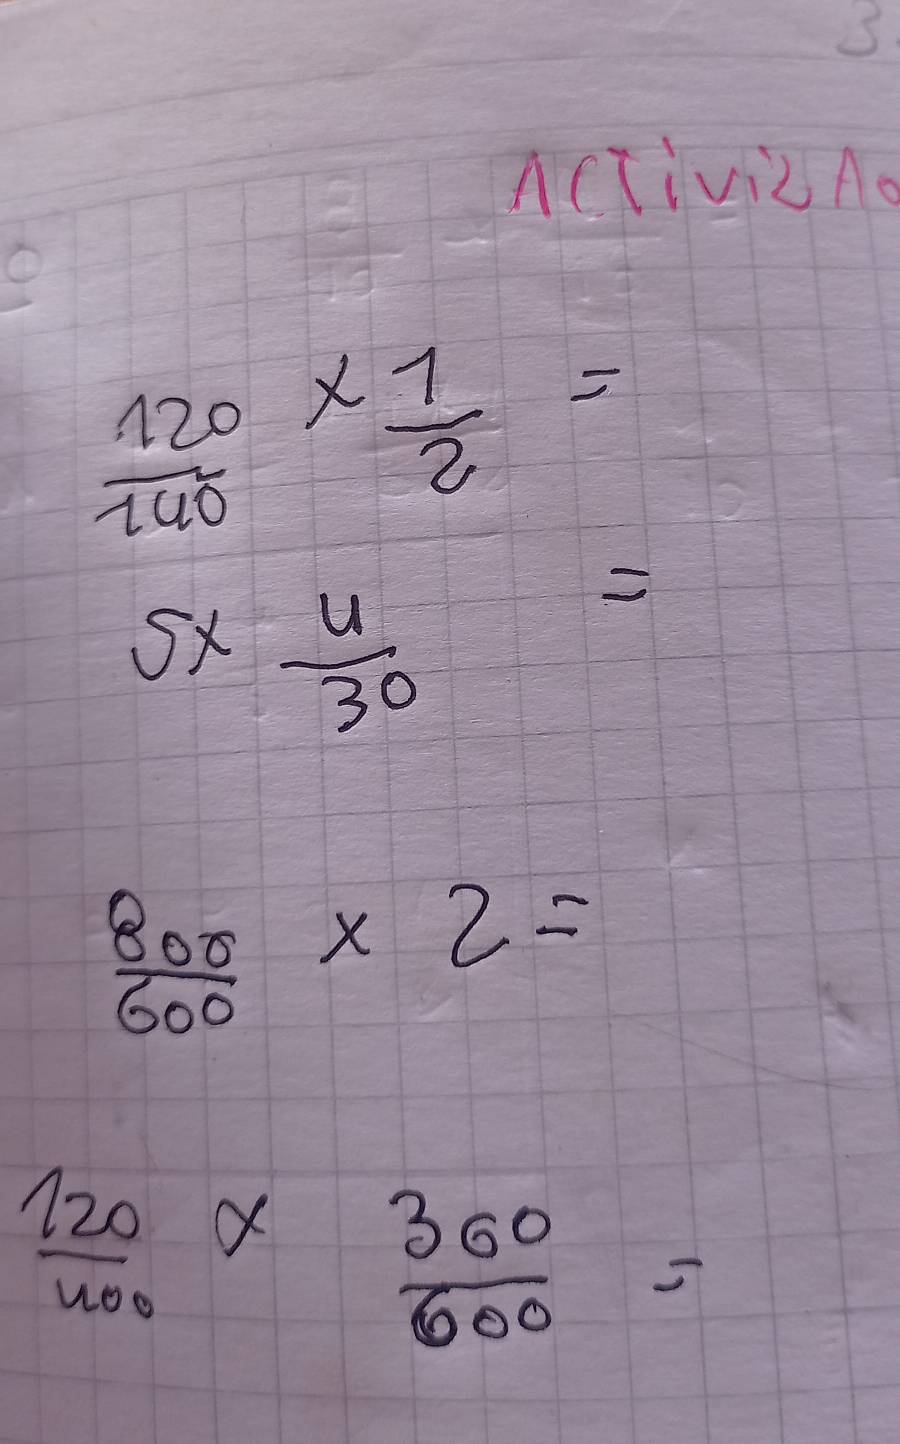 3
ACTiVi2A
120/140 x 1/2 =
5x 4/30 =
800/600 x 2 =
120/400 x 360/600 =